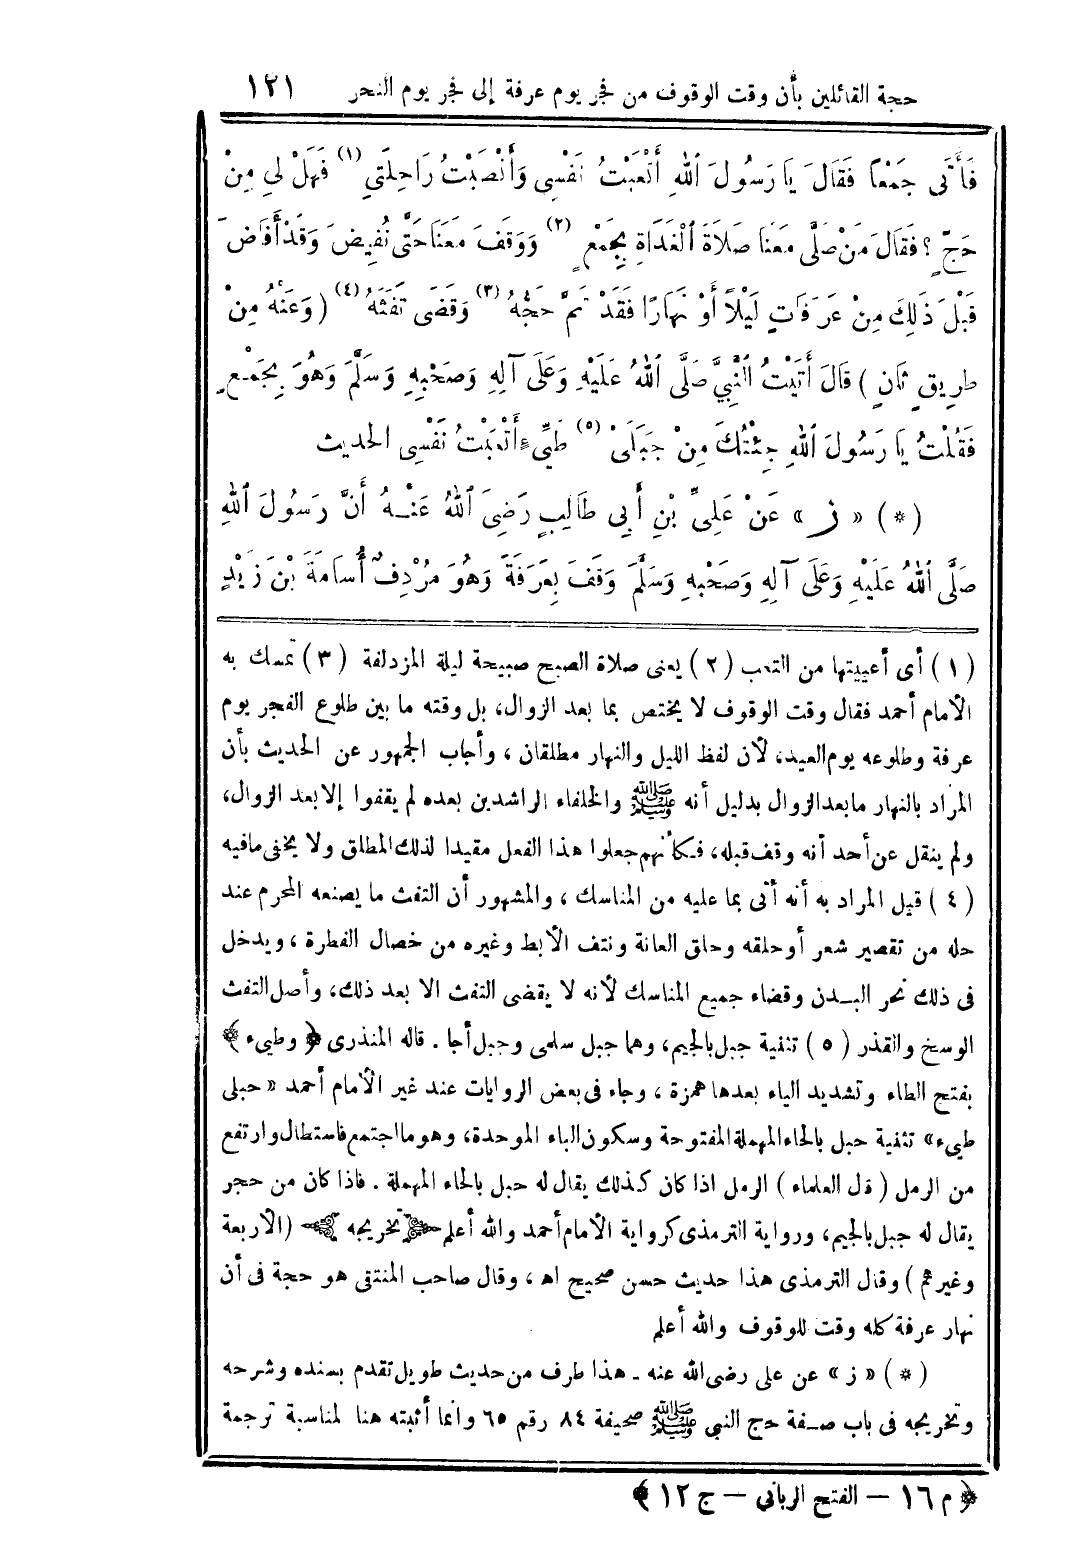 حجة القائلين بأن وقت الوقوف من فجر يوم عرفة إلى فجر يوم النحر ١٢١
فَأَتَى جَمْعًا فَقَالَ يَا رَسُولَ اللهِ أَتْعَبْتُ نَفْسِي وَأَنْصَبْتُ رَاحِلَتِي (١) فَهَلْ لِي مِنْ
حَجٍّ ؟ فَقَالَ مَنْ صَلَّى مَعَنَا صَلَاةَ الْغَدَاةِ بِجَمْعٍ (٢) وَوَقَفَ مَعَنَا حَتَّى نُفِيضَ وَقَدْ أَفَاضَ
قَبْلَ ذَلِكَ مِنْ عَرَفَاتٍ لَيْلًا أَوْ نَهَارًا فَقَدْ تَمَّ حَجُّهُ (٣) وَقَضَى تَفَثَهُ (٤) ( وَعَنْهُ مِنْ
طريقٍ ثَانٍ ) قَالَ أَتَيْتُ النَّبِيَّ صَلَّى اللهُ عَلَيْهِ وَعَلَى آلِهِ وَصَحْبِهِ وَسَلَّمَ وَهُوَ بِجَمْعٍ
فَقُلْتُ يَا رَسُولَ اللهِ جِئْتُكَ مِنْ جَبَلَيْ (٥) طَيِّءٍ أَتْعَبْتُ نَفْسِي الحديث
(*) « ز » عَنْ عَلِيِّ بْنِ أَبِي طَالِبٍ رَضِيَ اللهُ عَنْهُ أَنَّ رَسُولَ اللهِ
صَلَّى اللهُ عَلَيْهِ وَعَلَى آلِهِ وَصَحْبِهِ وَسَلَّمَ وَقَفَ بِعَرَفَةَ وَهُوَ مُرْدِفٌ أُسَامَةَ بْنَ زَيْدٍ
(١) أى أعييتها من التعب (٢) يعنى صلاة الصبح صبيحة ليلة المزدلفة (٣) تمسك به
الأمام أحمد فقال وقت الوقوف لا يختص بما بعد الزوال، بل وقته ما بين طلوع الفجر يوم
عرفة وطلوعه يوم العيد، لأن لفظ الليل والنهار مطلقان ، وأجاب الجمهور عن الحديث بأن
المراد بالنهار مابعد الزوال بدليل أنه ﷺ والخلفاء الراشدين بعده لم يقفوا إلا بعد الزوال،
ولم ينقل عن أحد أنه وقف قبله، فكأنهم جعلوا هذا الفعل مقيدا لذلك المطلق ولا يخفى مافيه
(٤) قيل المراد به أنه أتى بما عليه من المناسك ، والمشهور أن التفث ما يصنعه المحرم عند
حله من تقصير شعر أو حلقه وحلق العانة ونتف الأبط وغيره من خصال الفطرة ، ويدخل
فى ذلك نحر البدن وقضاء جميع المناسك لأنه لا يقضى التفث الا بعد ذلك، وأصل التفث
الوسخ والقذر (٥) تثنية جبل بالجيم، وهما جبل سلمى وجبل أجا . قاله المنذرى ﴿ وطيء ﴾
بفتح الطاء وتشديد الياء بعدها همزة ، وجاء فى بعض الروايات عند غير الأمام أحمد « حبلى
طيىء » تثنية حبل بالحاء المهملة المفتوحة وسكون الباء الموحدة، وهو ما اجتمع فاستطال وارتفع
من الرمل ( قال العلماء ) الرمل اذا كان كذلك يقال له حبل بالحاء المهملة . فاذا كان من حجر
يقال له جبل بالجيم، ورواية الترمذى كرواية الأمام أحمد والله أعلم ﴿ تخريجه ﴾ ( الأربعة
وغيرهم ) وقال الترمذى هذا حديث حسن صحيح اه ، وقال صاحب المنتقى هو حجة فى أن
نهار عرفة كله وقت للوقوف والله أعلم
(*) « ز » عن على رضى الله عنه ـ هذا طرف من حديث طويل تقدم بسنده وشرحه
وتخريجه فى باب صفة حج النبى ﷺ صحيفة ٨٤ رقم ٦٥ وانما أثبته هنا لمناسبة ترجمة
﴿ م ١٦ — الفتح الرباني — ج ١٢ ﴾